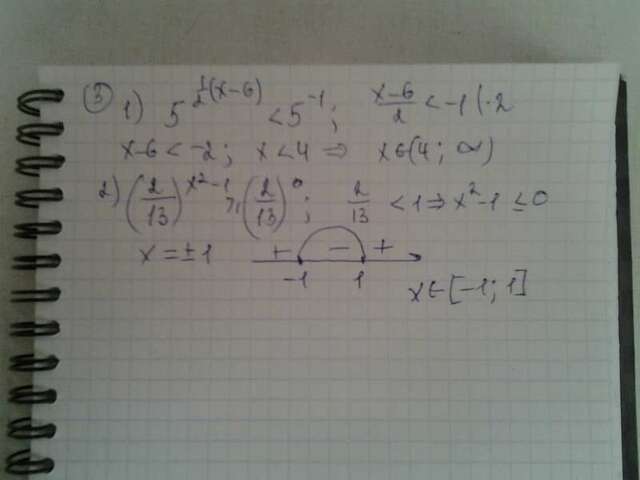 ③ 1) 5^{\frac{1}{2}(x-6)} < 5^{-1}; \frac{x-6}{2} < -1 (·2
x-6 < -2; x < 4 ⇒ x∈(4; ∞)
2) (\frac{2}{13})^{x^2-1} ≥ (\frac{2}{13})^0; \frac{2}{13} < 1 ⇒ x^2-1 ≤ 0
x = ±1 + − +
-1 1
x∈[-1; 1]